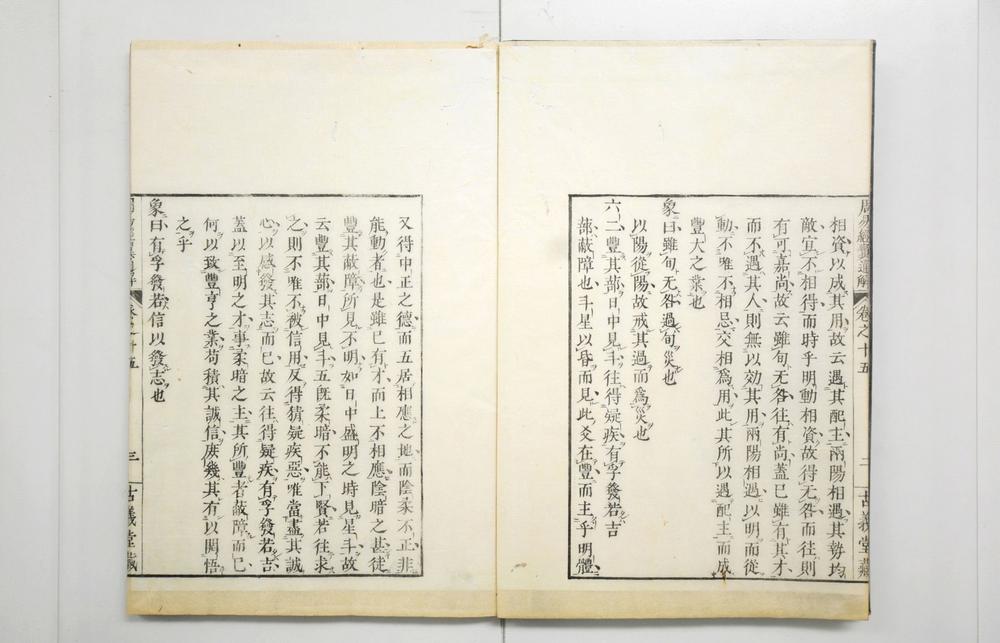 周易經翼通解 卷之十五 二 古義堂藏
相資以成其用故云遇其配主兩陽相遇其勢均
敵宜不相得而時乎明動相資故得无咎而往則
有可嘉尚故云雖旬无咎往有尚蓋已雖有其才
而不遇其人則無以效其用兩陽相遇以明而從
動不唯不相忌交相爲用此其所以遇配主而成
豐大之業也
象曰雖旬无咎過旬災也
以陽從陽故戒其過而爲災也
六二豐其蔀日中見斗往得疑疾有孚發若吉
蔀蔽障也斗星以昏而見此爻在豐而主乎明體
又得中正之德而五居相應之地而陰柔不正非
能動者也是雖已有才而上不相應陰暗之甚徒
豐其蔽障所見不明如日中盛明之時見星斗故
云豐其蔀日中見斗五既柔暗不能下賢若往求
之則不唯不被信用反得猜疑疾惡唯當盡其誠
心以感發其志而已故云往得疑疾有孚發若吉
蓋以至明之才事柔暗之主其所豐者蔽障而已
何以致豐亨之業苟積其誠信庶幾其有以開悟
之乎
象曰有孚發若信以發志也
卷之十五 三 古義堂藏